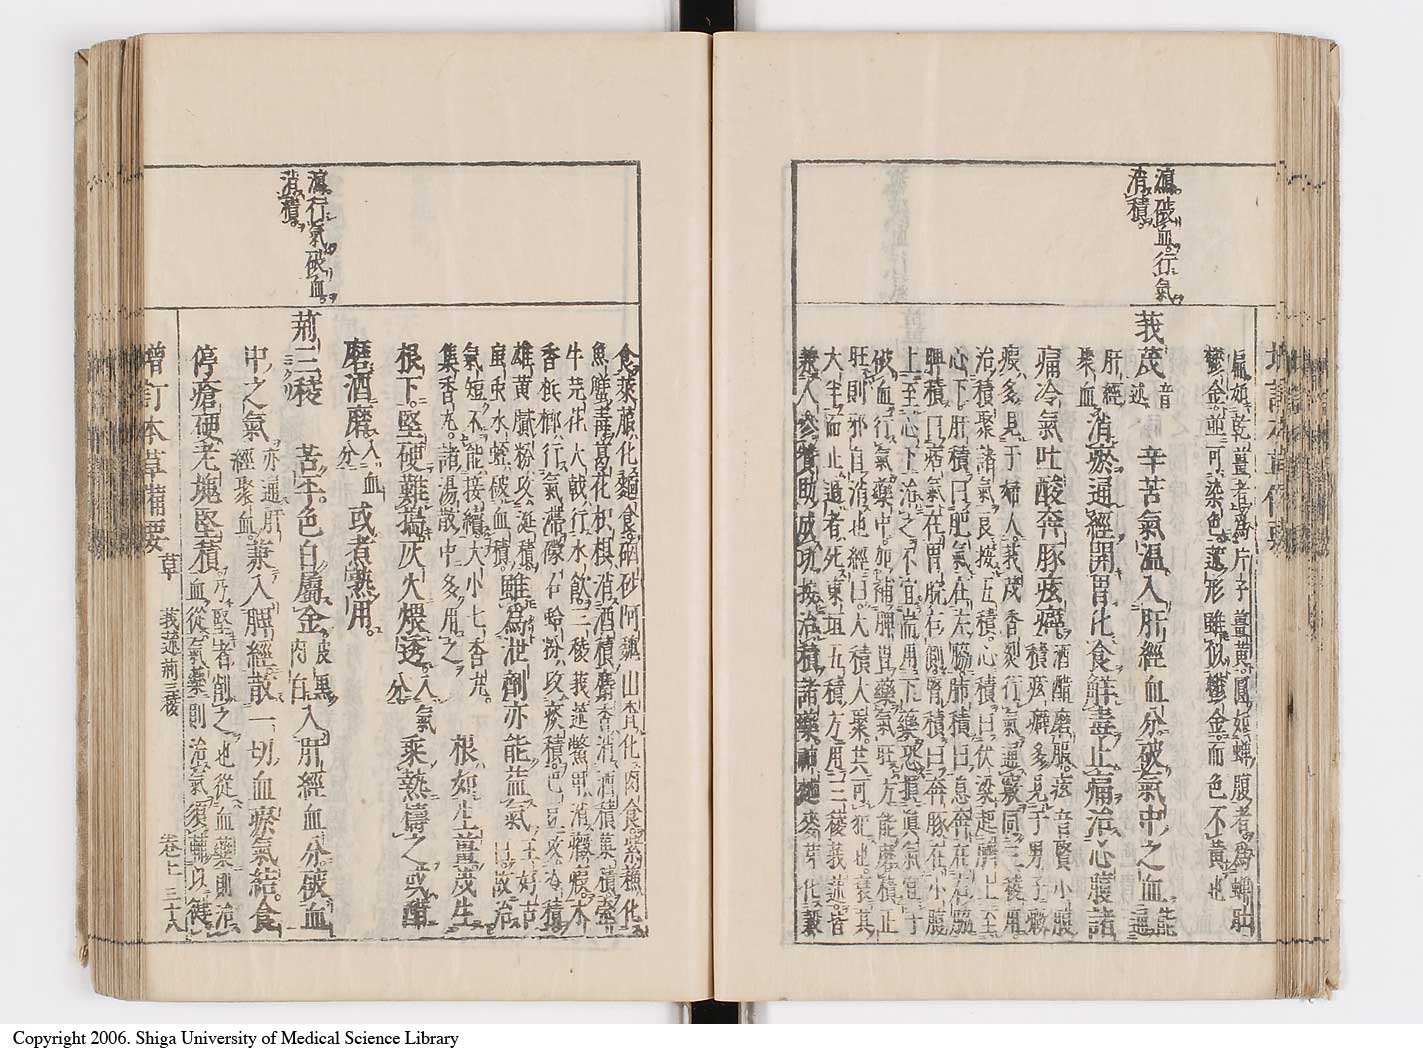 瀉破血行氣
消積
扁如乾薑者為片子薑黃圓如蟬腹者為蟬肚
鬱金並可染色莖形雖似鬱金而色不黃也
莪茂音述辛苦氣溫入肝經血分破氣中之血能通
肝經聚血消瘀通經開胃化食解毒止痛治心腹諸
痛冷氣吐酸奔豚痃癖酒醋磨服痃音賢小腹
積痃癖多見于男子癥
瘕多見于婦人莪茂香烈行氣通竅同三稜用
治積聚諸氣良按五積心積曰伏梁起臍上至
心下肝積曰肥氣在左脇肺積曰息奔在右脇
脾積曰痞氣在胃脘右側腎積曰奔豚在小腹
上至心下治之不宜耑用下藥恐損真氣宜于
破血行氣藥中加補脾胃藥氣旺方能磨積正
旺則邪自消也經曰大積大聚其可犯也衰其
大半而止過者死東垣五積方用三稜莪述皆
兼人參贊助成功按治積諸藥神麯麥芽化穀
瀉行氣破血
消積
食萊菔化麵食硇砂阿魏山查化肉食紫蘇化
魚蟹毒葛花枳椇消酒積麝香消酒積果積
牛芫花大戟行水飲三稜莪述鱉甲消癥瘕木
香檳榔行氣滯礞石蛤粉攻痰積巴豆攻冷積
雄黃膩粉攻涎積
虻虫水蛭破血積雖為泄劑亦能益氣王好古曰故治
氣短不能接續大小七香丸
集香丸諸湯散中多用之根如生薑茂生
根下堅硬難搗灰火煨透入氣分乘熱搗之或醋
磨酒磨入血分或煮熟用
荊三稜苦平色白屬金皮黑肉白入肝經血分破血
中之氣亦通肝經聚血兼入脾經散一切血瘀氣結食
停瘡硬老塊堅積乃堅者削之也從血藥則治
血從氣藥則治氣須輔以健
增訂本草備要 草 莪述荊三稜 卷上 三十八
Copyright 2006. Shiga University of Medical Science Library